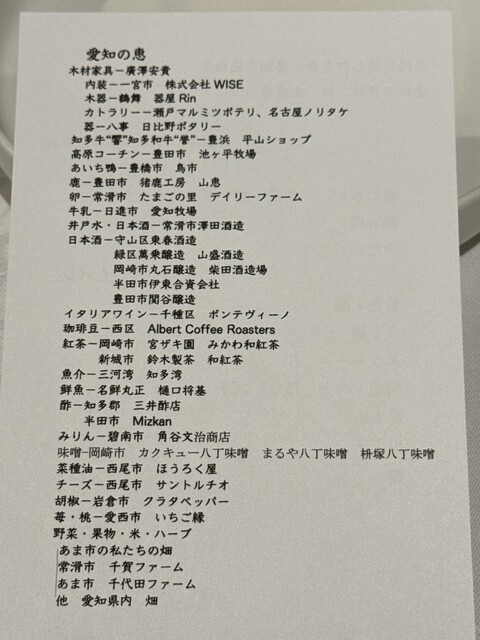 愛知の恵
木材家具－廣澤安貴
内装－一宮市　株式会社 WISE
木器－鶴舞　器屋 Rin
カトラリー－瀬戸マルミツポテリ、名古屋ノリタケ
器－八事　日比野ポタリー
知多牛“響”知多和牛“誉”－豊浜　平山ショップ
高原コーチン－豊田市　池ヶ平牧場
あいち鴨－豊橋市　鳥市
鹿－豊田市　猪鹿工房　山恵
卵－常滑市　たまごの里　デイリーファーム
牛乳－日進市　愛知牧場
井戸水・日本酒－常滑市澤田酒造
日本酒－守山区東春酒造
緑区萬乗醸造　山盛酒造
岡崎市丸石醸造　柴田酒造場
半田市伊東合資会社
豊田市関谷醸造
イタリアワイン－千種区　ポンテヴィーノ
珈琲豆－西区　Albert Coffee Roasters
紅茶－岡崎市　宮ザキ園　みかわ和紅茶
新城市　鈴木製茶　和紅茶
魚介－三河湾　知多湾
鮮魚－名鮮丸正　樋口将基
酢－知多郡　三井酢店
半田市　Mizkan
みりん－碧南市　角谷文治商店
味噌－岡崎市　カクキュー八丁味噌　まるや八丁味噌　枡塚八丁味噌
菜種油－西尾市　ほうろく屋
チーズ－西尾市　サントルチオ
胡椒－岩倉市　クラタペッパー
苺・桃－愛西市　いちご縁
野菜・果物・米・ハーブ
あま市の私たちの畑
常滑市　千賀ファーム
あま市　千代田ファーム
他　愛知県内　畑